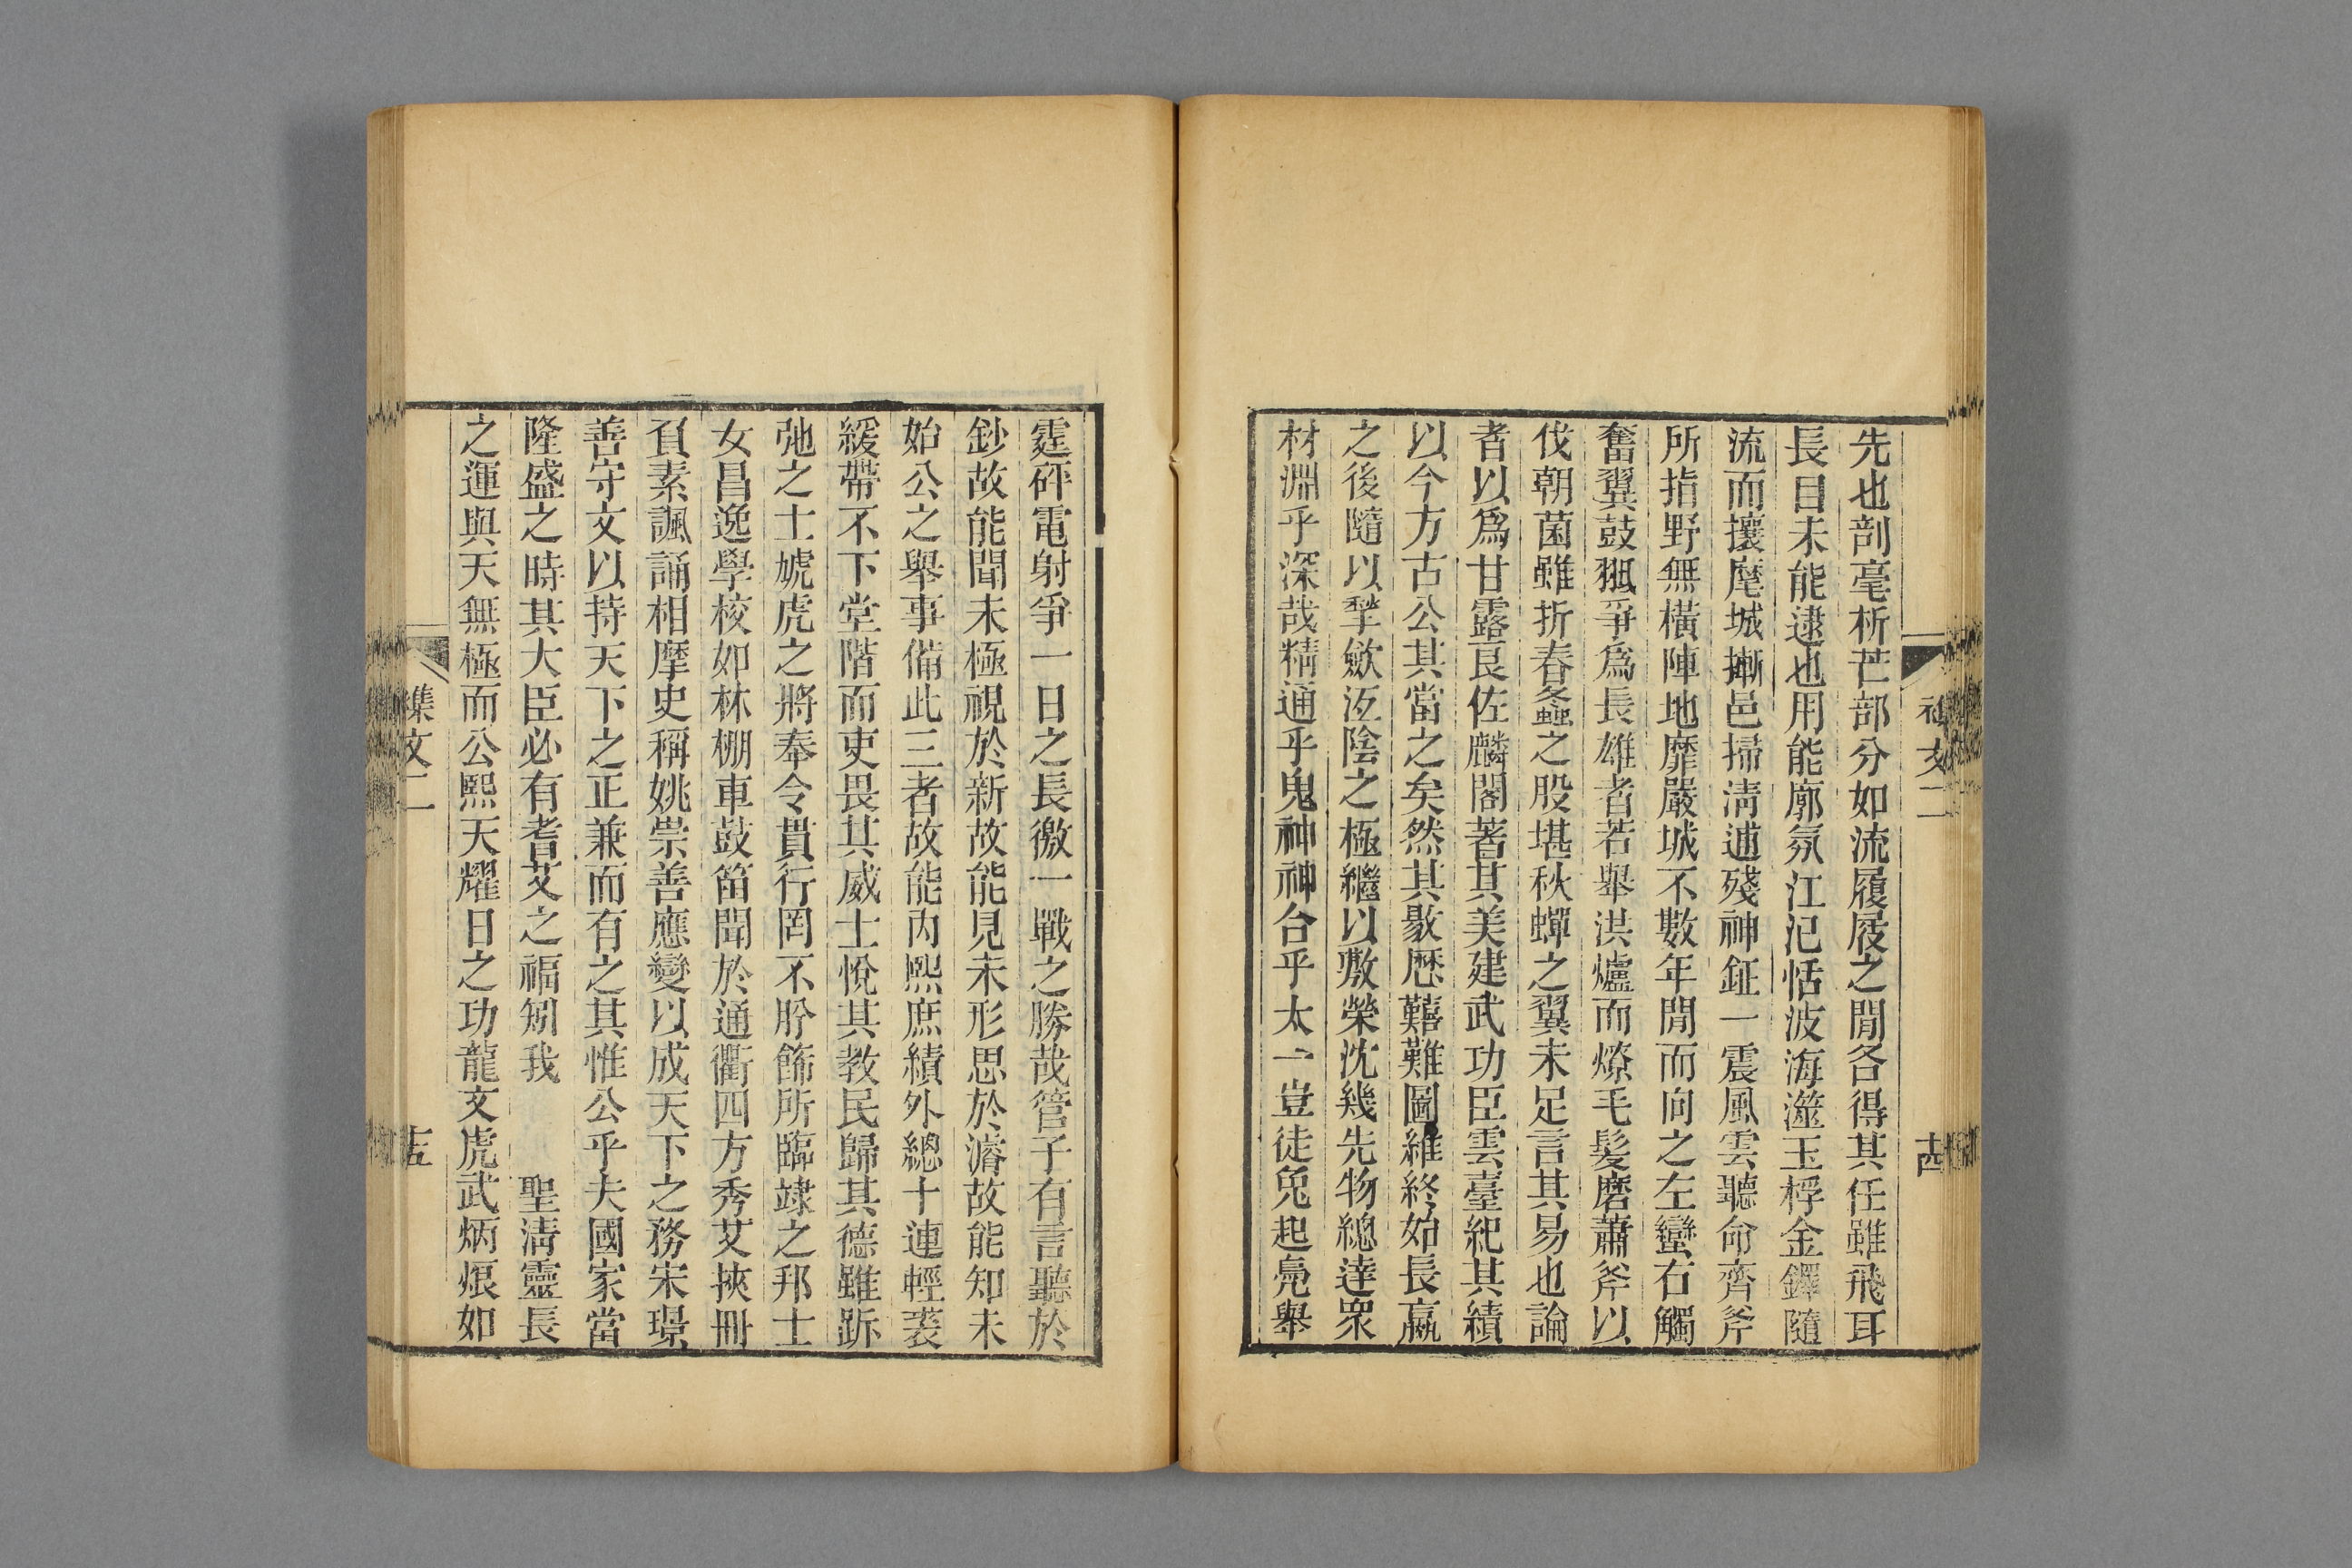 先也剖毫析芒部分如流履屐之閒各得其任雖飛耳
長目未能逮也用能廓氛江汜恬波海澨玉桴金鐸隨
流而攘麾城摲邑掃淸逋殘神鉦一震風雲聽命齊斧
所指野無橫陣地靡嚴城不數年閒而向之左蠻右觸
奮翼鼓翄爭爲長雄者若舉洪爐而燎毛髮磨蕭斧以
伐朝菌雖折春螽之股堪秋蟬之翼未足言其易也論
者以爲甘露良佐麟閣著其美建武功臣雲臺紀其績
以今方古公其當之矣然其敭歴囏難圖維終始長嬴
之後隨以揫歛沍陰之極繼以敷榮沈幾先物總達衆
材淵乎深哉精通乎鬼神神合乎太一豈徒兔起鳧舉
集文二
十四
霆砰電射爭一日之長徼一戰之勝哉管子有言聽於
鈔故能聞未極視於新故能見未形思於濬故能知未
始公之舉事備此三者故能內熙庶績外總十連輕裘
緩帶不下堂階而吏畏其威士悅其教民歸其德雖跅
弛之士虓虎之將奉令貫行罔不肹飾所臨竦之邦士
女昌逸學校如林棚車鼓笛聞於通衢四方秀艾挾冊
負素諷誦相摩史稱姚崇善應變以成天下之務宋璟
善守文以持天下之正兼而有之其惟公乎夫國家當
隆盛之時其大臣必有耆艾之福矧我 聖淸靈長
之運與天無極而公熙天耀日之功龍文虎武炳烺如
集文二
十五